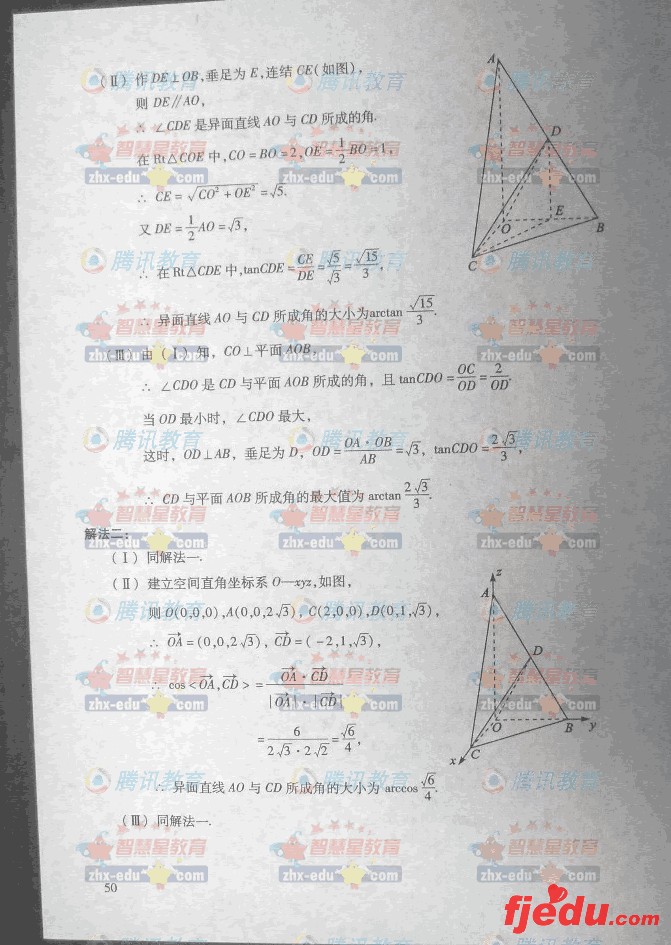 (Ⅱ) 作 DE⊥OB,垂足为 E,连结 CE(如图),
则 DE∥AO,
∴ ∠CDE 是异面直线 AO 与 CD 所成的角.
在 Rt△COE 中,CO=BO=2,OE=1/2 BO=1,
∴ CE=√(CO²+OE²)=√5.
又 DE=1/2 AO=√3,
∴ 在 Rt△CDE 中,tanCDE=CE/DE=√5/√3=√15/3,
∴ 异面直线 AO 与 CD 所成角的大小为arctan √15/3.
(Ⅲ) 由(Ⅰ)知, CO⊥平面 AOB,
∴ ∠CDO 是 CD 与平面 AOB 所成的角, 且 tanCDO=OC/OD=2/OD.
当 OD 最小时, ∠CDO 最大,
这时, OD⊥AB, 垂足为 D, OD=OA·OB/AB=√3, tanCDO=2√3/3,
∴ CD 与平面 AOB 所成角的最大值为 arctan 2√3/3.
A
D
O
E
B
C
解法二:
(Ⅰ) 同解法一.
(Ⅱ) 建立空间直角坐标系 O—xyz,如图,
则 O(0,0,0),A(0,0,2√3), C(2,0,0),D(0,1,√3),
∴ OA→=(0,0,2√3), CD→=(−2,1,√3),
∴ cos<OA→,CD→>=OA→·CD→/|OA→|·|CD→|
=6/2√3·2√2=√6/4,
∴ 异面直线 AO 与 CD 所成角的大小为 arccos √6/4.
(Ⅲ) 同解法一.
z
A
D
O
B
y
C
x
50
腾讯教育
智慧星教育
zhx-edu.com
fjedu.com